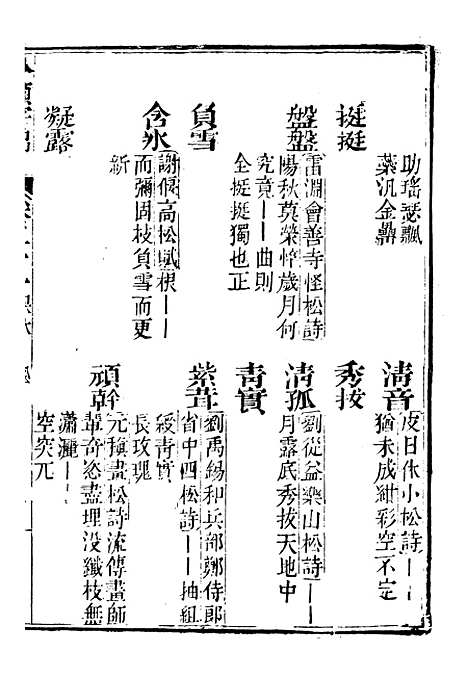 助瑤瑟飄
藥汎金鼎
清音
皮日休小松詩︱︱
猶未成紺彩空不定
挺挺
秀拔
盤盤
雷淵會善寺怪松詩
陽秋莫榮悴歲月何
究竟︱︱曲則
全挺挺獨也正
清孤
劉從益樂山松詩︱︱
月露底秀拔天地中
負雪
青實
含氷
謝偃高松賦根︱︱
而彌固枝負雪而更
新
紫茸
劉禹錫和兵部鄭侍郎
省中四松詩︱︱抽組
綬青實
長玫瑰
凝露
頑幹
元稹畫松詩流傳畫師
輩奇態盡埋没纎枝無
瀟灑︱︱
空突兀